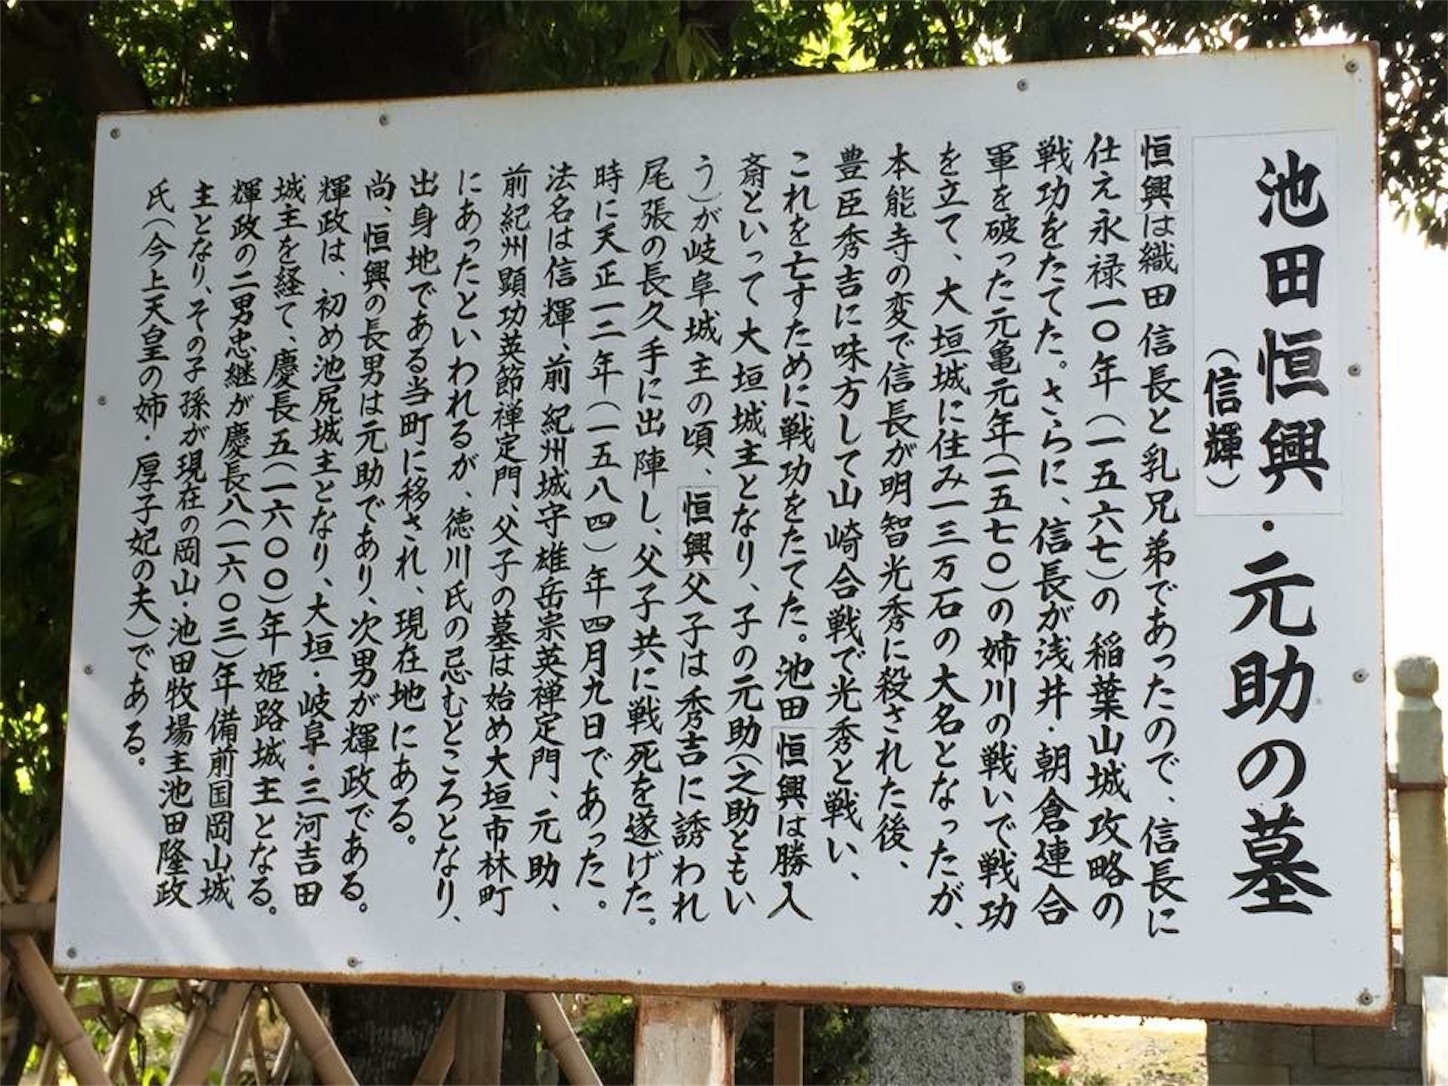 池田恒興・元助の墓
(信輝)
恒興は織田信長と乳兄弟であったので、信長に
仕え永禄一〇年(一五六七)の稲葉山城攻略の
戦功をたてた。さらに、信長が浅井・朝倉連合
軍を破った元亀元年(一五七〇)の姉川の戦いで戦功
を立て、大垣城に住み一三万石の大名となったが、
本能寺の変で信長が明智光秀に殺された後、
豊臣秀吉に味方して山崎合戦で光秀と戦い、
これを亡すために戦功をたてた。池田恒興は勝入
斎といって大垣城主となり、子の元助(之助ともい
う)が岐阜城主の頃、恒興父子は秀吉に誘われ
尾張の長久手に出陣し、父子共に戦死を遂げた。
時に天正一二年(一五八四)年四月九日であった。
法名は信輝、前紀州城守雄岳宗英禅定門、元助、
前紀州顕功英節禅定門、父子の墓は始め大垣市林町
にあったといわれるが、徳川氏の忌むところとなり、
出身地である当町に移され、現在地にある。
尚、恒興の長男は元助であり、次男が輝政である。
輝政は、初め池尻城主となり、大垣・岐阜・三河吉田
城主を経て、慶長五(一六〇〇)年姫路城主となる。
輝政の二男忠継が慶長八(一六〇三)年備前国岡山城
主となり、その子孫が現在の岡山・池田牧場主池田隆政
氏(今上天皇の姉・厚子妃の夫)である。